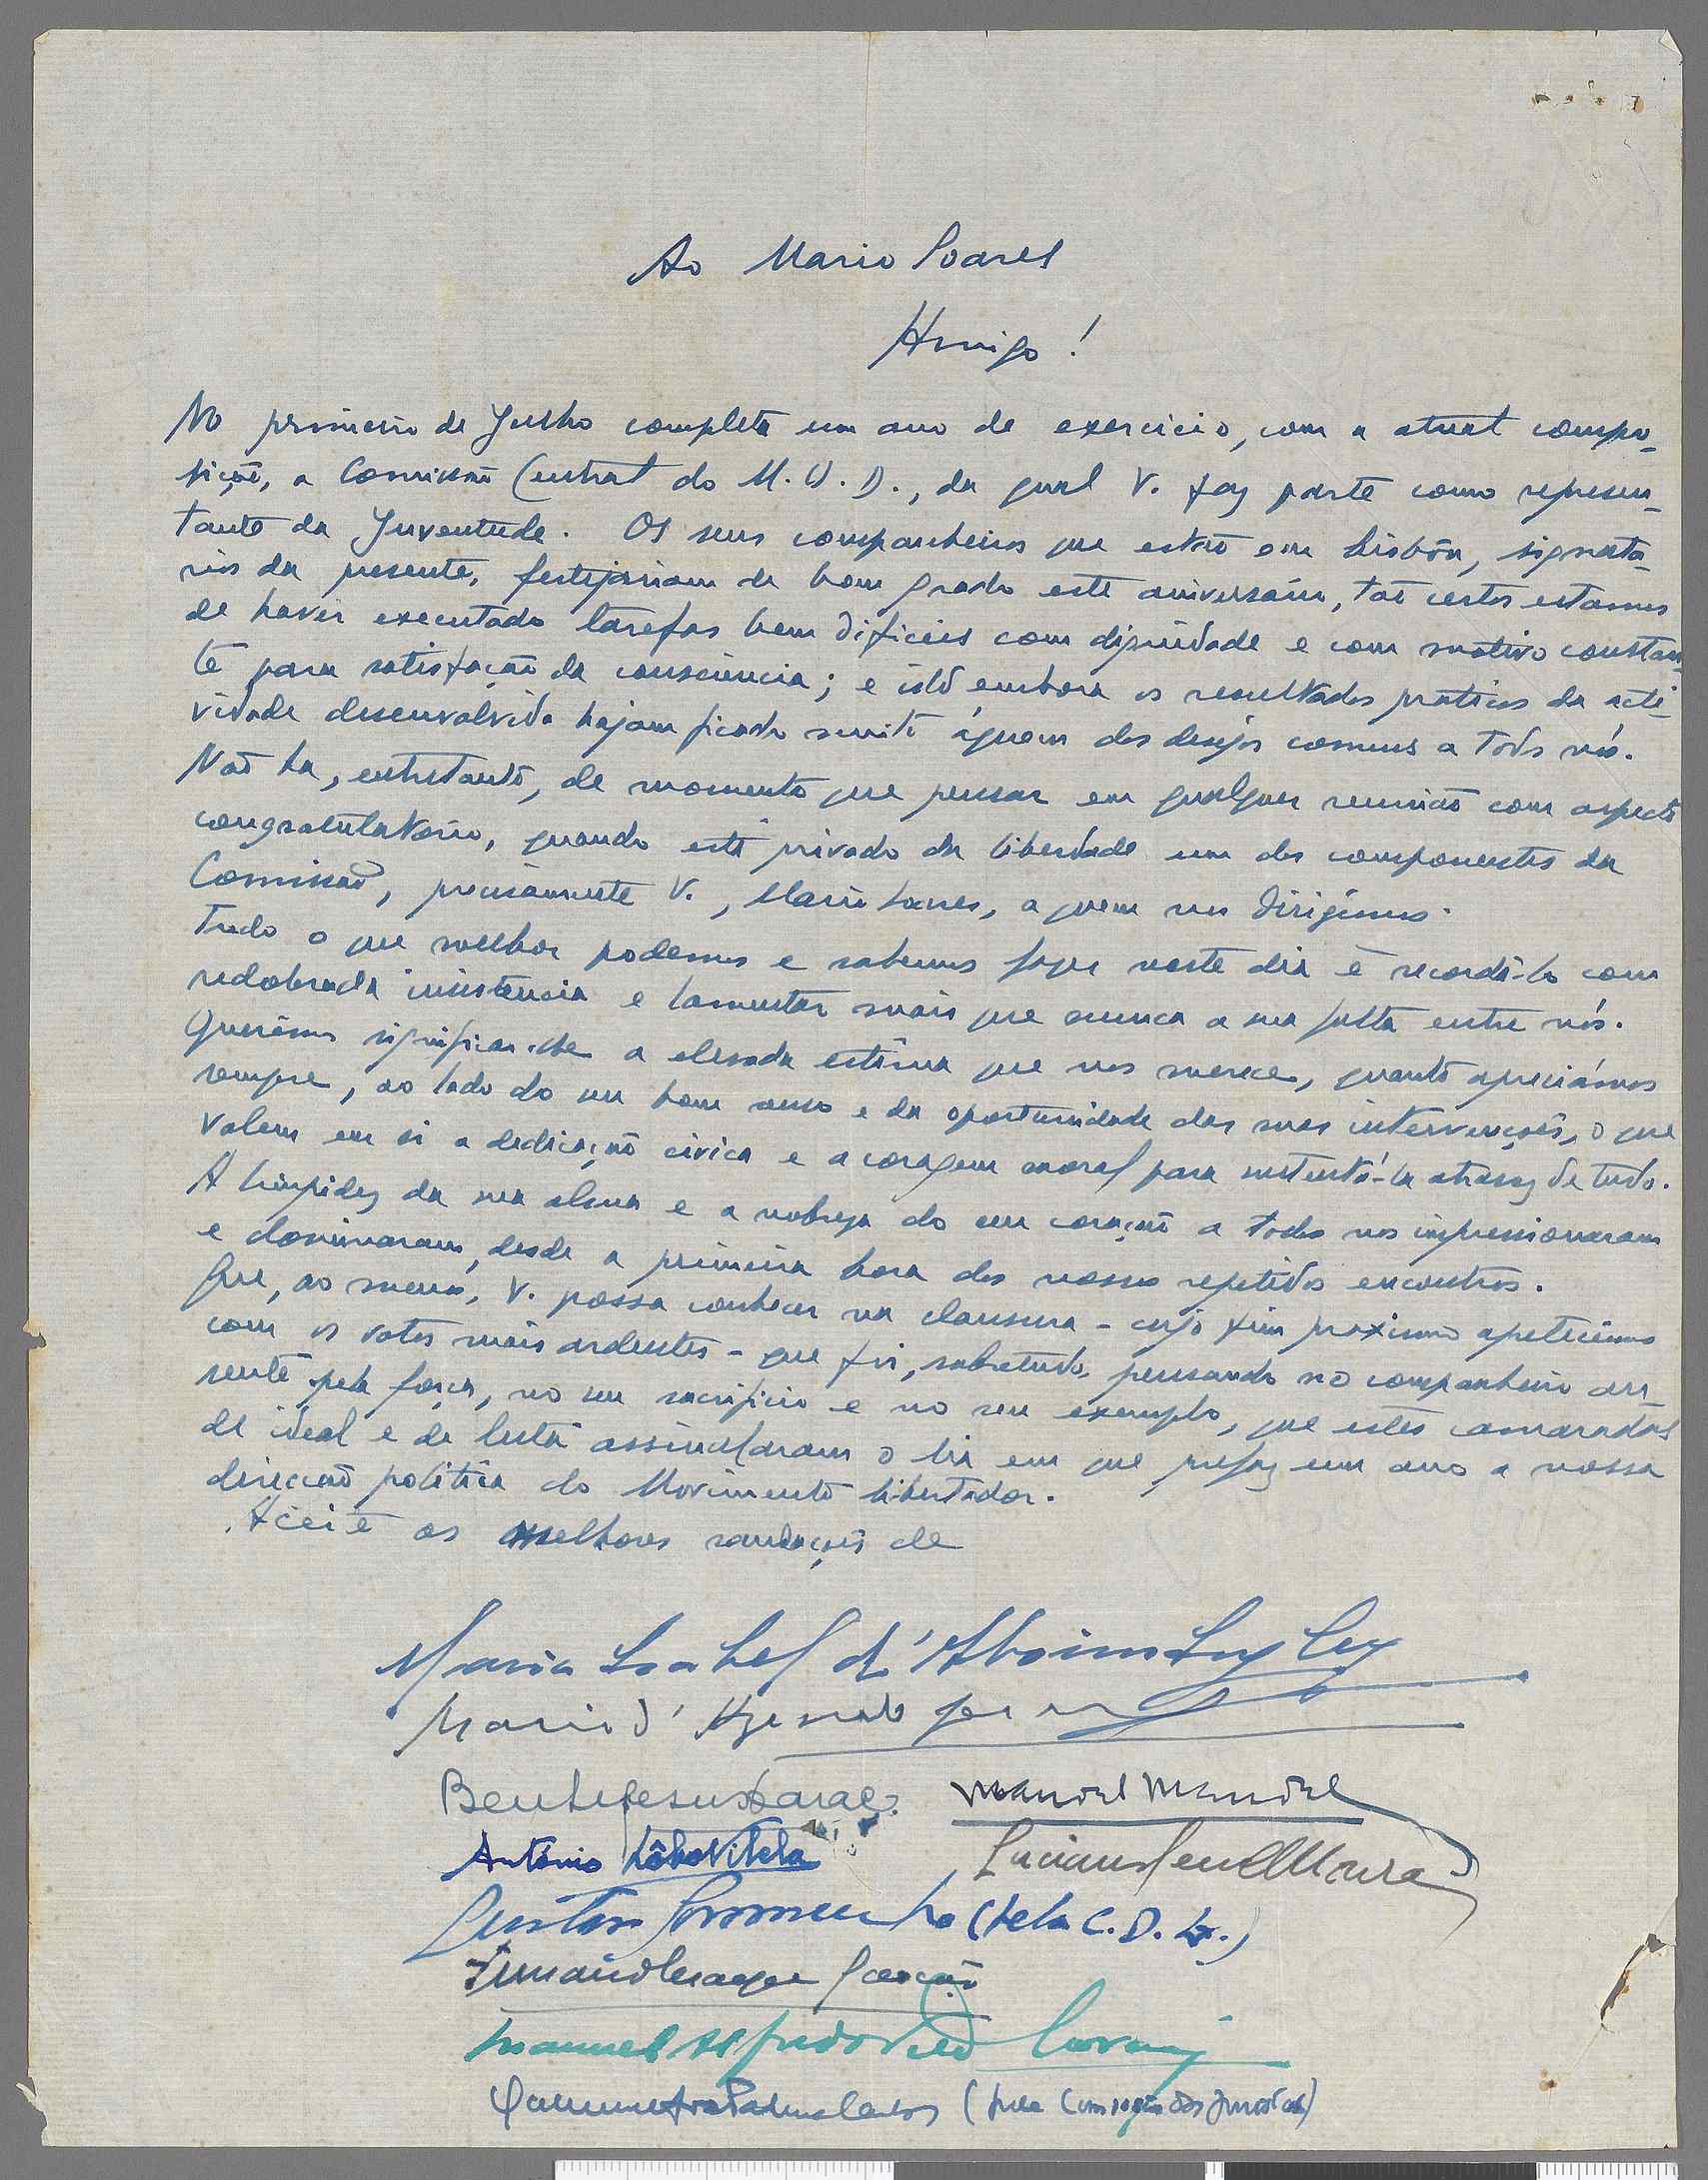 Ao Mario Soares
Amigo!
No primeiro de Julho completa um ano de exercicio, com a atual compo-
sição, a Comissão Central do M. U. D., da qual V. faz parte como represen-
tante da Juventude. Os seus companheiros que estão em Lisbôa, signatá-
rios da presente, festejariam de bom grado este aniversário, tão certos estamos
de haver executado tarefas bem dificeis com dignidade e com motivo constan-
te para satisfação da consciencia; e isto embora os resultados praticos da acti-
vidade desenvolvida hajam ficado muito áquem dos desejos comuns a todos nós.
Não ha, entretanto, de momento que pensar em qualquer reunião com aspecto
congratulatório, quando está privado da liberdade um dos componentes da
Comissão, precisamente V., Mario Soares, a quem nos dirigimos.
Tudo o que melhor podemos e sabemos fazer neste dia é recordá-lo com
redobrada insistencia e lamentar mais que nunca a sua falta entre nós.
Querêmos significar-lhe a elevada estima que nos merece, quanto apreciámos
sempre, ao lado do seu bom senso e da oportunidade das suas intervenções, o que
valem em si a dedicação civica e a coragem moral para sustentá-la atravez de tudo.
A limpidez da sua alma e a nobreza do seu coração a todos nos impressionaram
e dominaram, desde a primeira hora dos nossos repetidos encontros.
Que, ao menos, V. possa conhecer na clausura - cujo fim proximo apetecêmos
com os votos mais ardentes - que foi, sobretudo, pensando no companheiro au-
sente pela força, no seu sacrificio e no seu exemplo, que estes camaradas
de ideal e de luta assinalaram o dia em que prefaz um ano a nossa
direcção politica do Movimento libertador.
Aceite as melhores saudações de
Maria Isabel d'Aboim Inglez
Mario d'Azevedo Gomes
Bento de Jesus Caraça
Manuel Mendes
António Lôbo Vilela
Luciano Serrão de Moura
Gustavo Soromenho (pela C. D. L.)
Fernando Mayer Garção
Manuel Alfredo Tito de Morais
(pela Comissão dos Jornalistas)